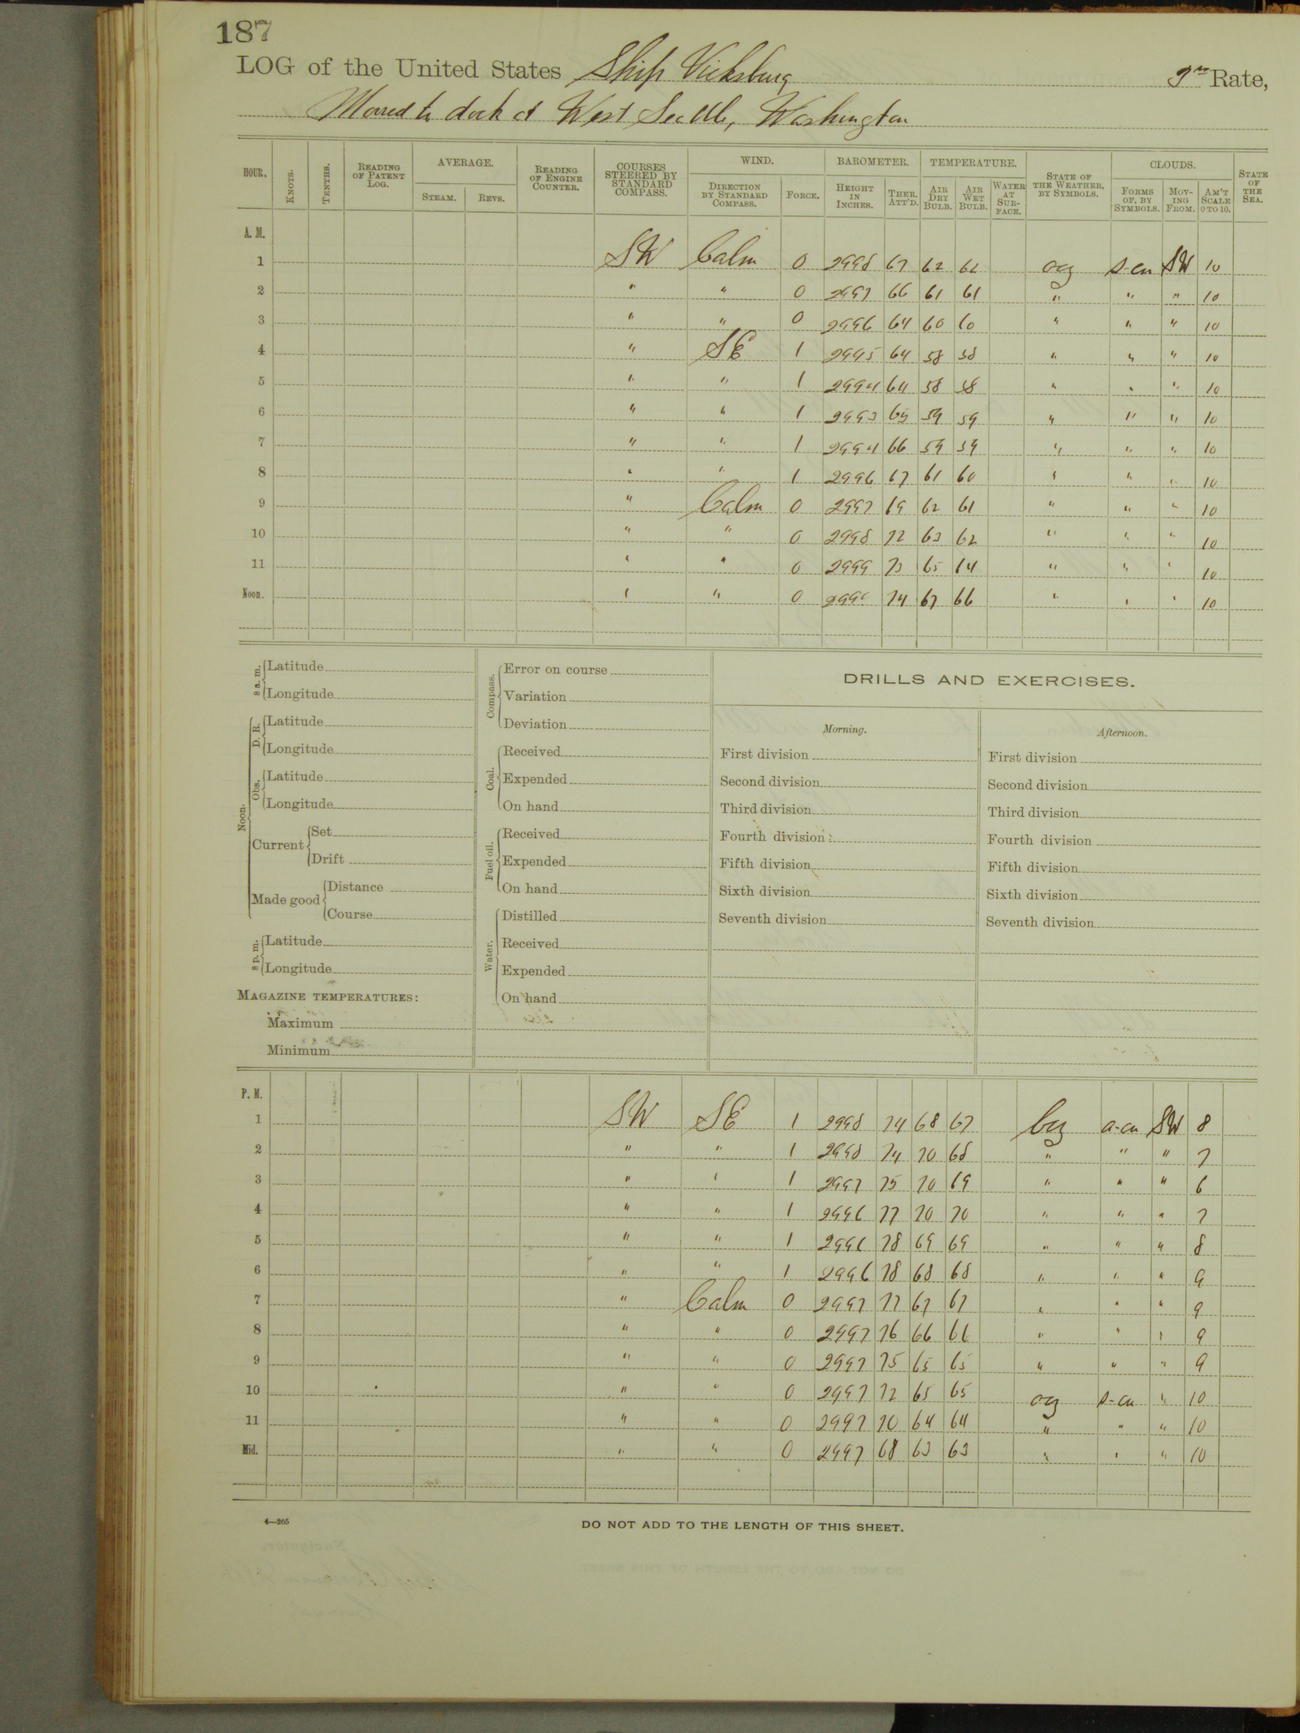 187
LOG of the United States Ship Vicksburg 3rd Rate,
Moored to dock at West Seattle, Washington
HOUR. KNOTS. TENTHS. READING OF PATENT LOG. AVERAGE. STEAM. REVS. READING OF ENGINE COUNTER. COURSES STEERED BY STANDARD COMPASS. WIND. DIRECTION BY STANDARD COMPASS. FORCE. BAROMETER. HEIGHT IN INCHES. THER. ATT'D. TEMPERATURE. AIR DRY BULB. AIR WET BULB. WATER AT SUR-FACE. STATE OF THE WEATHER, BY SYMBOLS. CLOUDS. FORMS OF, BY SYMBOLS. MOV-ING FROM. AM'T SCALE 0 TO 10. STATE OF THE SEA.
A. M.
1 SW Calm 0 2998 67 62 62 ocg s-cu SW 10
2 " " 0 2997 66 61 61 " " " 10
3 " " 0 2996 64 60 60 " " " 10
4 " SE 1 2995 64 58 58 " " " 10
5 " " 1 2994 64 58 58 " " " 10
6 " " 1 2993 65 59 59 " " " 10
7 " " 1 2994 66 59 59 " " " 10
8 " " 1 2996 67 61 60 " " " 10
9 " Calm 0 2997 69 62 61 " " " 10
10 " " 0 2998 72 63 62 " " " 10
11 " " 0 2999 73 65 64 " " " 10
Noon. " " 0 74 67 66 " " " 10
8 a. m. Latitude
Longitude
Noon. D. R. Latitude
Longitude
Obs. Latitude
Longitude
Current Set
Drift
Made good Distance
Course
8 p. m. Latitude
Longitude
MAGAZINE TEMPERATURES:
Maximum
Minimum
Compass. Error on course
Variation
Deviation
Coal. Received
Expended
On hand
Fuel oil. Received
Expended
On hand
Water. Distilled
Received
Expended
On hand
DRILLS AND EXERCISES.
Morning.
First division
Second division
Third division
Fourth division
Fifth division
Sixth division
Seventh division
Afternoon.
First division
Second division
Third division
Fourth division
Fifth division
Sixth division
Seventh division
P. M.
1 SW SE 1 2998 74 68 67 bcg a-cu SW 8
2 " " 1 2998 74 70 68 " " " 7
3 " " 1 2997 75 70 69 " " " 6
4 " " 1 2996 77 70 70 " " " 7
5 " " 1 2996 78 69 69 " " " 8
6 " " 1 2996 78 68 68 " " " 9
7 " Calm 0 2997 77 67 67 " " " 9
8 " " 0 2997 76 66 66 " " " 9
9 " " 0 2997 75 65 65 " " " 9
10 " " 0 2997 72 65 65 ocg s-cu " 10
11 " " 0 2997 70 64 64 " " " 10
Mid. " " 0 2997 68 63 63 " " " 10
4—265
DO NOT ADD TO THE LENGTH OF THIS SHEET.